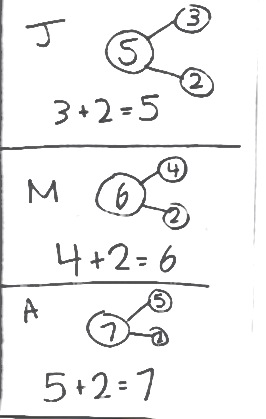 J 5 3
2
3+2=5
M 6 4
2
4+2=6
A 7 5
2
5+2=7